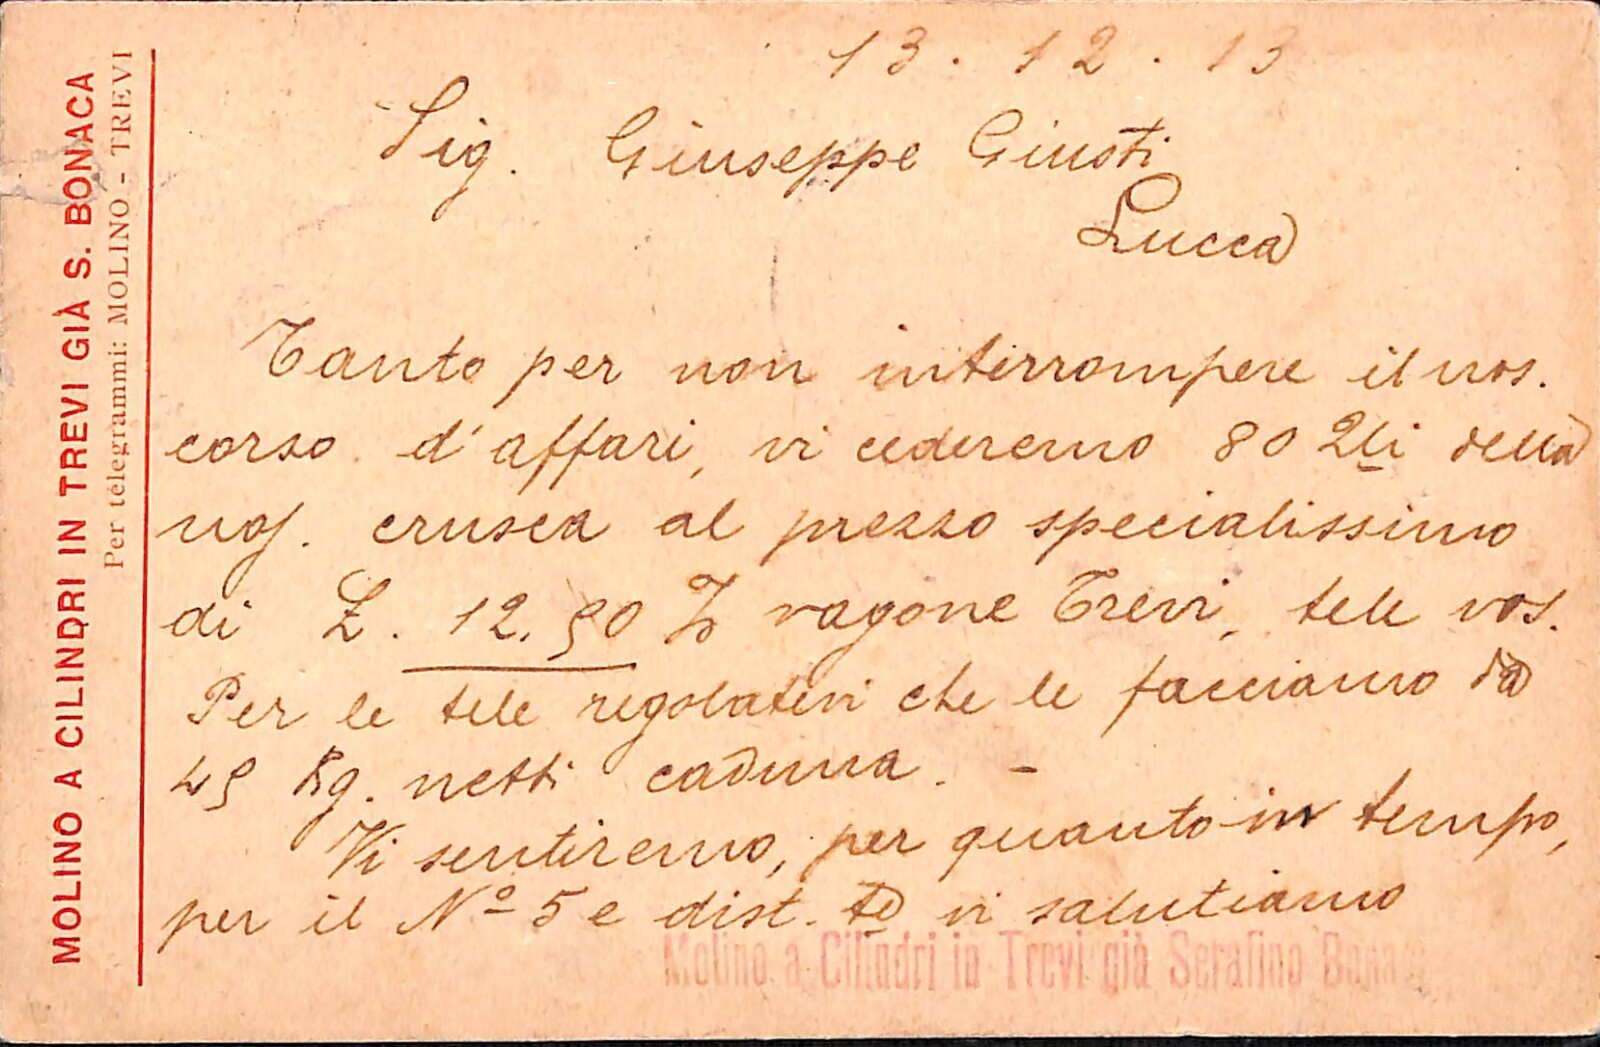 MOLINO A CILINDRI IN TREVI GIÀ S. BONACA
Per telegrammi: MOLINO - TREVI
13. 12. 13
Sig. Giuseppe Giusti
Lucca
Tanto per non interrompere il nos.
corso d'affari, vi cederemo 80 Qli della
nos. crusca al prezzo specialissimo
di L. 12.50 % vagone Trevi, tele vos.
Per le tele regolatevi che le facciamo da
45 Kg. netti caduna. -
Vi sentiremo, per quanto in tempo,
per il Nº 5 e dist. te vi salutiamo
Molino a Cilindri in Trevi già Serafino Bona